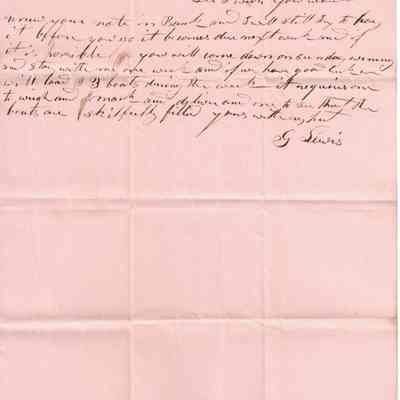 renew your note in Bank and I will still try to have
it before you so it becomes due next week and if
it is possible you will come down on sunday evening
and stay with me one week and if we have good luck we
will load 3 boats during the week it requires one
to weigh and mark and deliver and one to see that the
boats are skilfully filled yours with respect
G Lewis